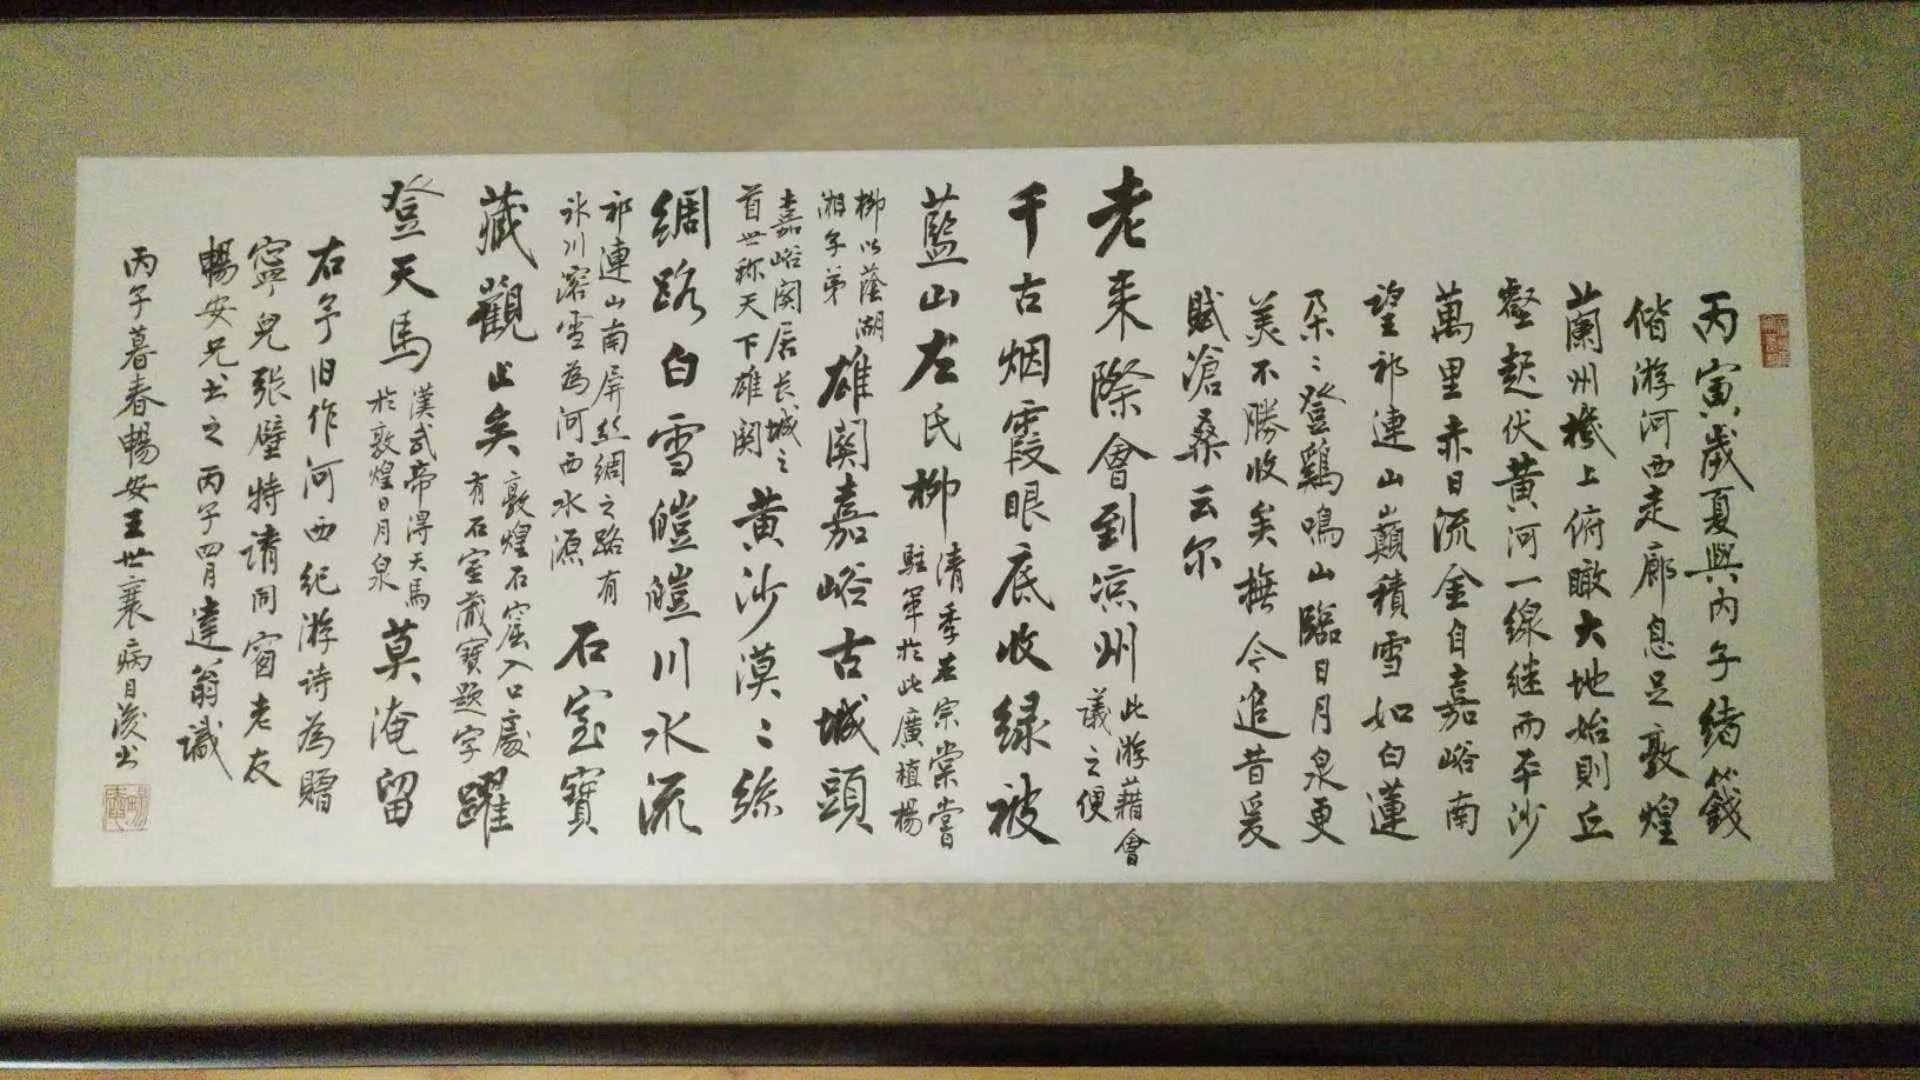 丙寅歲夏與內子緒籛
偕游河西走廊息足敦煌
蘭州機上俯瞰大地始則丘
壑起伏黃河一線继而平沙
萬里赤日流金自嘉峪南
望祁連山巔積雪如白蓮
朵〻登鷄鳴山臨日月泉更
美不勝收矣撫今追昔爰
賦滄桑云尔
老来際會到凉州
此游藉會
議之便
千古烟霞眼底收绿被
藍山左氏柳
清季左宗棠嘗
駐軍於此廣植楊
柳以蔭湖
湘子弟
雄関嘉峪古城頭
嘉峪関居长城之
首世称天下雄関
黄沙漠〻絲
綢路白雪皚皚川水流
祁連山南屏丝綢之路有
冰川溶雪為河西水源
石室寶
藏觀止矣
敦煌石窟入口處
有石室藏寶題字
躍
登天馬
漢武帝得天馬
於敦煌日月泉
莫淹留
右予旧作河西纪游诗為贈
寧兒張壁特请同窗老友
暢安兄书之丙子四月達翁識
丙子暮春暢安王世襄病目后书